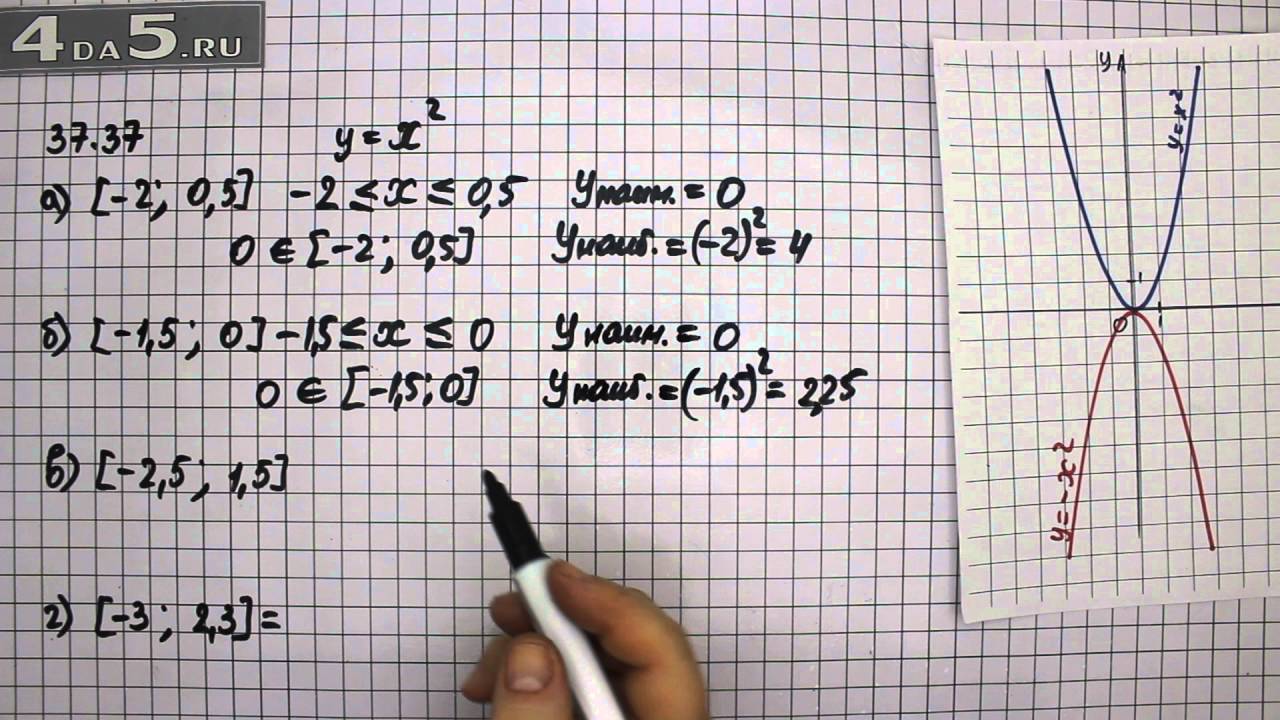 4DA5.RU
37.37 y = x²
а) [-2; 0,5] -2 ≤ x ≤ 0,5 Yнаим. = 0
0 ∈ [-2; 0,5] Yнаиб. = (-2)² = 4
б) [-1,5; 0] -1,5 ≤ x ≤ 0 Yнаим. = 0
0 ∈ [-1,5; 0] Yнаиб. = (-1,5)² = 2,25
в) [-2,5; 1,5]
г) [-3; 2,3] =
y
y = x²
1
0
y = -x²